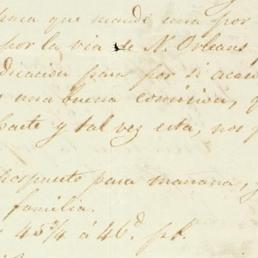 para que mande una por
por la via de N. Orleans
dicacion para por si acaso
una buena comision, q
parte y tal vez esta, nos
para mañana, y
familia.
45¾ á 46d.